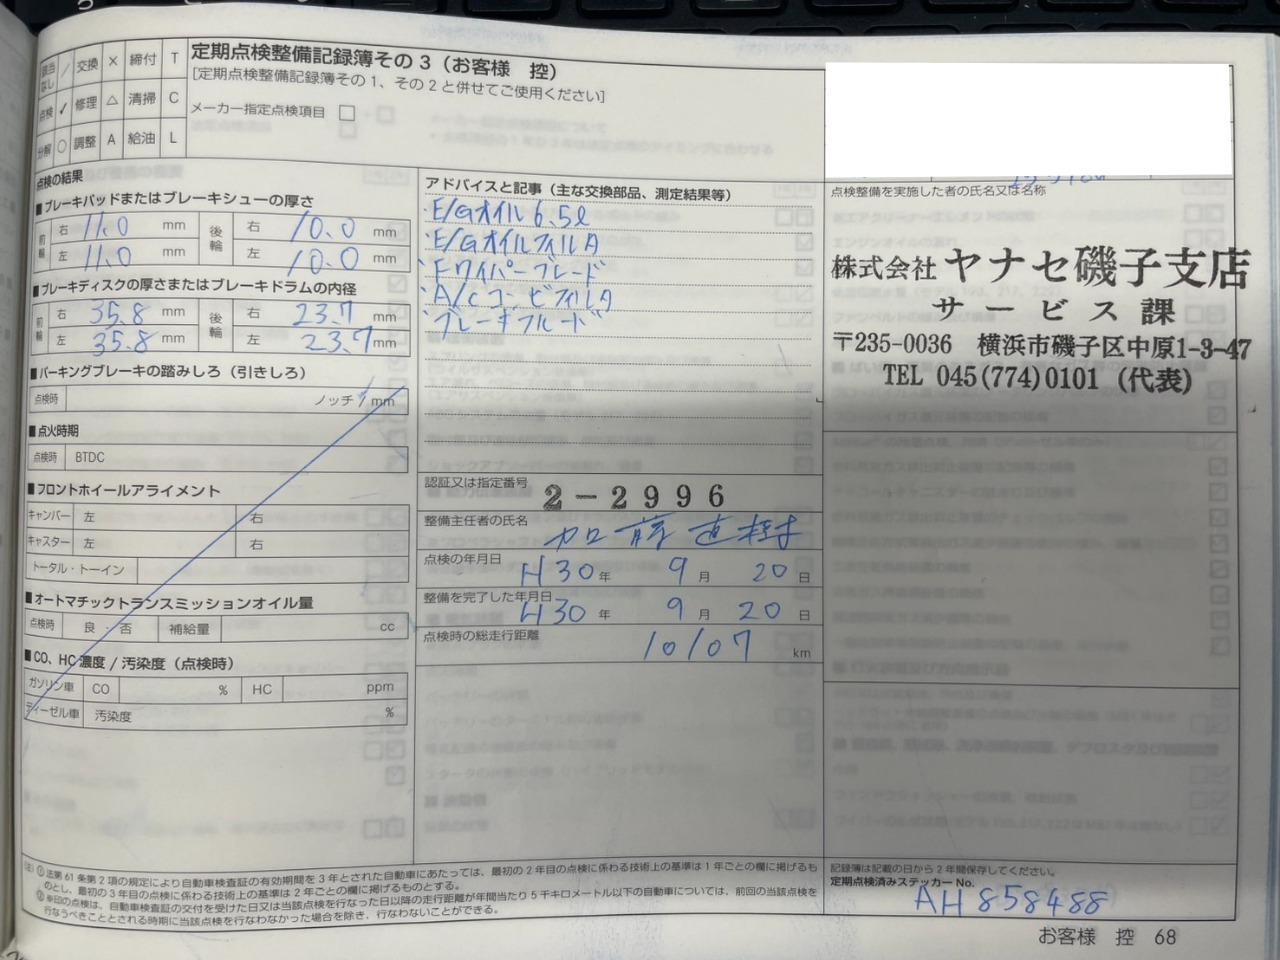 該当なし / 交換 × 締付 T
点検 ✓ 修理 △ 清掃 C
分解 ○ 調整 A 給油 L
定期点検整備記録簿その3(お客様 控)
[定期点検整備記録簿その1、その2と併せてご使用ください]
メーカー指定点検項目 □
点検の結果
■ブレーキパッドまたはブレーキシューの厚さ
前輪 右 11.0 mm 後輪 右 10.0 mm
左 11.0 mm 左 10.0 mm
■ブレーキディスクの厚さまたはブレーキドラムの内径
前輪 右 35.8 mm 後輪 右 23.7 mm
左 35.8 mm 左 23.7 mm
■パーキングブレーキの踏みしろ(引きしろ)
点検時 ノッチ/mm
■点火時期
点検時 BTDC
■フロントホイールアライメント
キャンバー 左 右
キャスター 左 右
トータル・トーイン
■オートマチックトランスミッションオイル量
点検時 良・否 補給量 cc
■CO、HC 濃度/汚染度(点検時)
ガソリン車 CO % HC ppm
ディーゼル車 汚染度 %
アドバイスと記事(主な交換部品、測定結果等)
・E/Gオイル 6.5ℓ
・E/Gオイルフィルタ
・Fワイパーブレード
・A/Cコンビフィルタ
・ブレーキフルード
認証又は指定番号 2-2996
整備主任者の氏名 加藤直樹
点検の年月日 H30年 9月 20日
整備を完了した年月日 H30年 9月 20日
点検時の総走行距離 10107 km
点検整備を実施した者の氏名又は名称
株式会社 ヤナセ磯子支店
サービス課
〒235-0036 横浜市磯子区中原1-3-47
TEL 045(774)0101 (代表)
(注) ① 法第61条第2項の規定により自動車検査証の有効期間を3年とされた自動車にあたっては、最初の2年目の点検に係わる技術上の基準は1年ごとの欄に掲げるも
のとし、最初の3年目の点検に係わる技術上の基準は2年ごとの欄に掲げるものとする。
② ※印の点検は、自動車検査証の交付を受けた日又は当該点検を行なった日以降の走行距離が年間当たり5千キロメートル以下の自動車については、前回の当該点検を
行なうべきこととされる時期に当該点検を行なわなかった場合を除き、行なわないことができる。
記録簿は記載の日から2年間保存してください。
定期点検済みステッカーNo.
AH858488
お客様 控 68